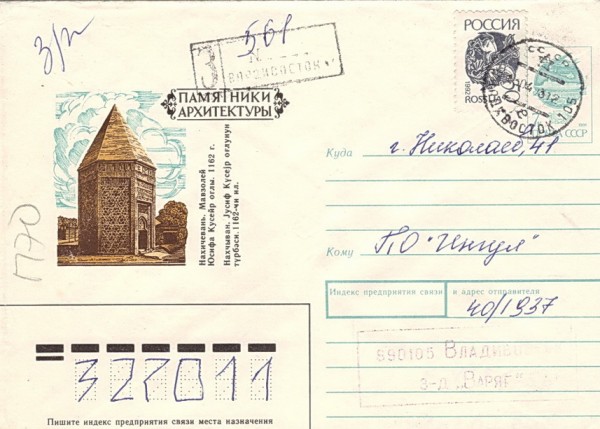 З/п
561
N
ВЛАДИВОСТОК
РОССИЯ
1992
ROSSIJA
СССР
ВЛАДИВОСТОК-105
ПОЧТА СССР
ПАМЯТНИКИ
АРХИТЕКТУРЫ
Нахичевань. Мавзолей
Юсифа Кусейр оглы. 1162 г.
Нахчыван. Јусиф Күсејр оғлунун
түрбәси. 1162-чи ил.
П70
Куда
г. Николаев, 41
Кому
П/О "Ингул"
Индекс предприятия связи
и адрес отправителя
40/1937
690105 Владивос
з-д „Варяг"
322011
Пишите индекс предприятия связи места назначения